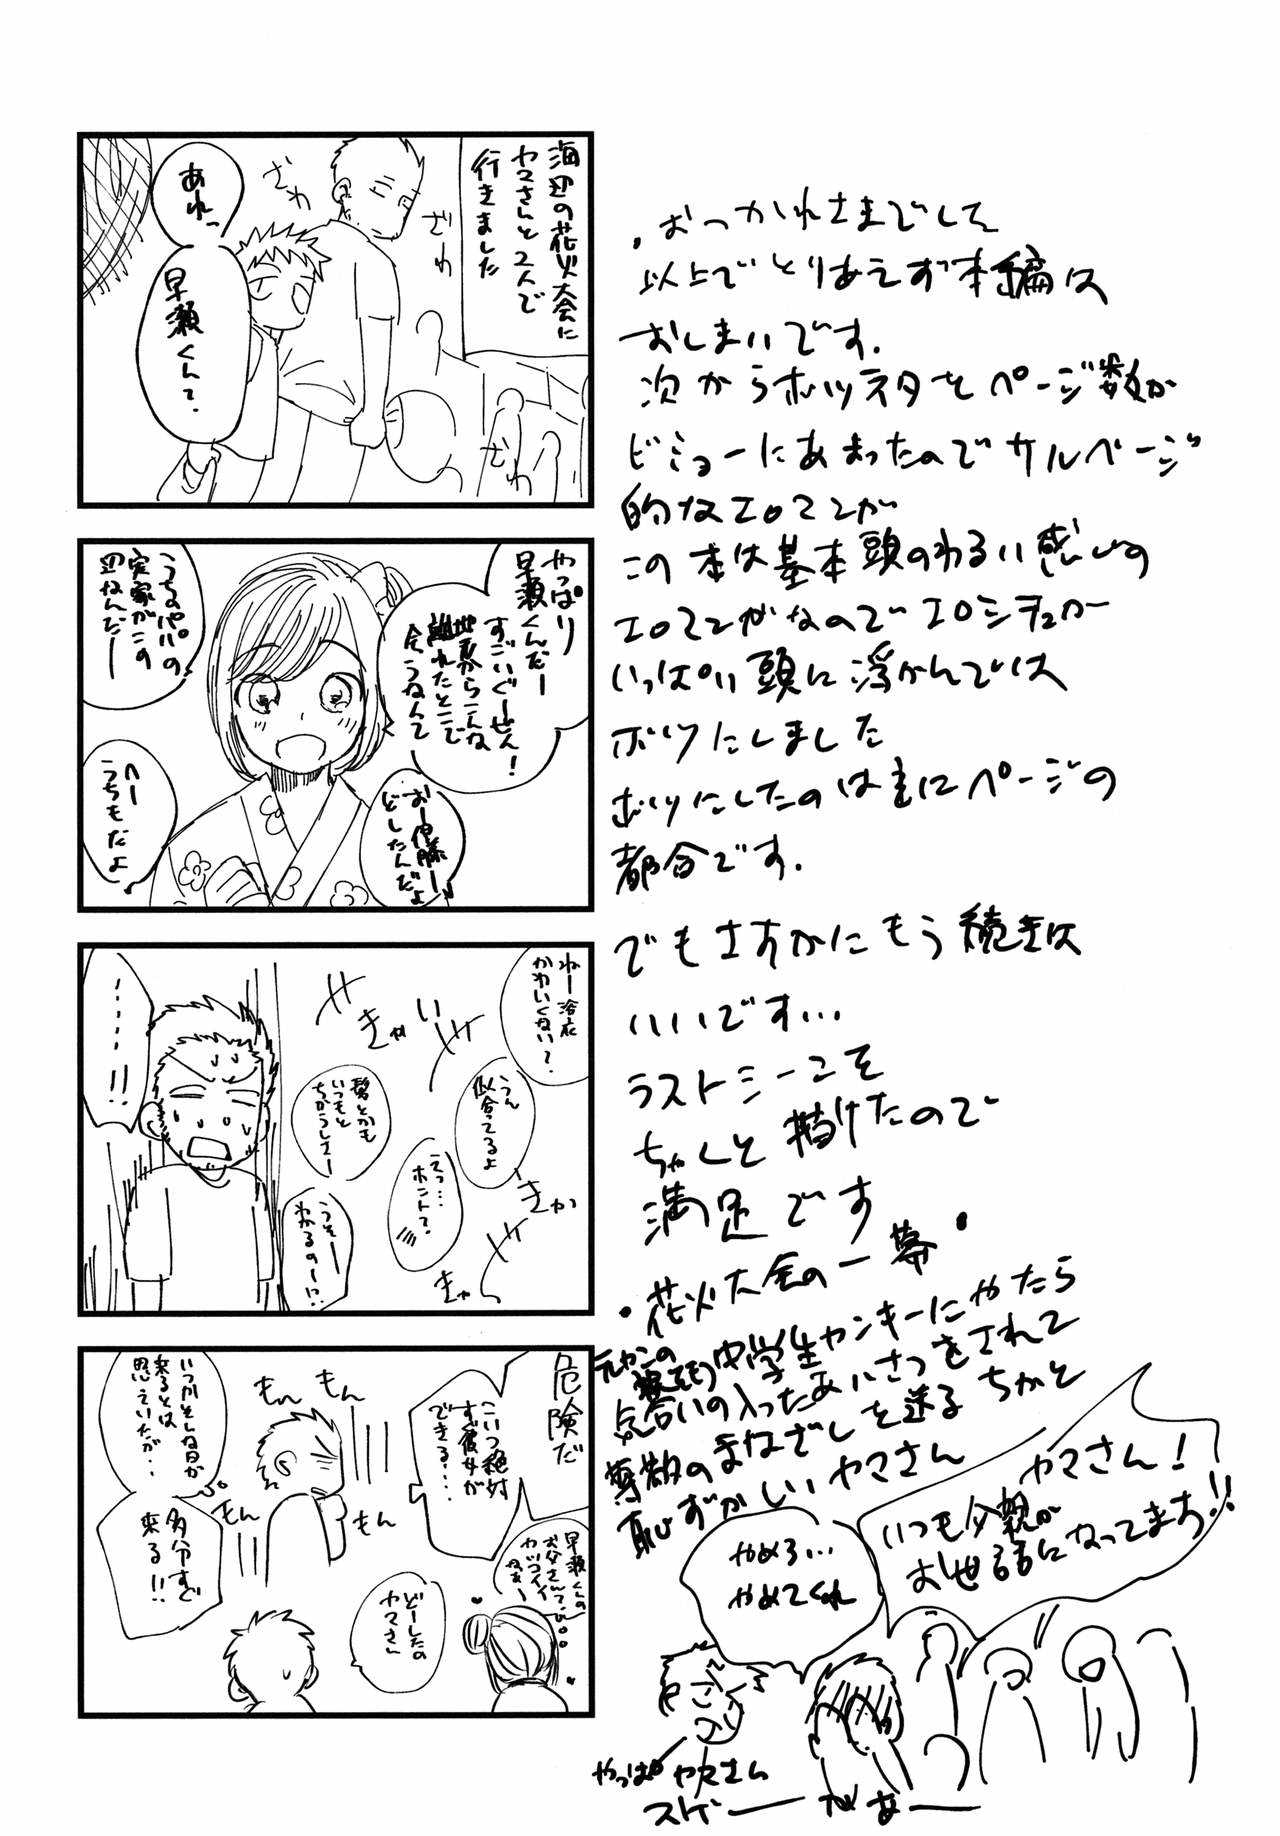 海辺の花火大会に
ヤマさんと2人で
行きました
ざわ
ざわ
ざわ
あれっ
早瀬くんて.
やっぱり
早瀬くんだー
すごいぐーぜん!
地元からこんな
離れたとこで
会うなんて
おー伊藤ー
どしたんだよ
うちのパパの
実家がこの
辺なんだー
へー
うちもだよ
ねー浴衣
かわいくない?
うん
似合ってるよ
髪とかも
いつもと
ちがうしさー
えっ…
ホント?
うそー
わかるのー!?
きゃい
きゃ
きゃ
………!!
危険だ
こいつ絶対
すぐ彼女が
できる…
もんもん
もんもん
いつかそんな日が
来るとは
思えていたが…
多分すぐ
来る!!
早瀬くんの
お父さんって
カッコイイ
ねぇー
どーしたの
ヤマさん
・おつかれさまでして
以上でとりあえず本編は
おしまいです.
次からボツネタをページ数が
ビミョーにあまったのでサルベージ
的なエロマンガ
この本は基本頭のわるい感じの
エロマンガなのでエロシチュが
いっぱい頭に浮かんでは
ボツにしました
ボツにしたのは主にページの
都合です.
でもさすがにもう続きは
いいです…
ラストシーこそ
ちゃんと描けたので
満足です
・花火大会の一幕・
元ヤンの
中学生ヤンキーにやたら
気合いの入ったあいさつをされて
尊敬のまなざしを送るちかと
恥ずかしいヤマさん
ヤマさん!
いつも
お世話になってます!!
やめろ…
やめてくれ
やっぱヤマさん
スゲーがあー